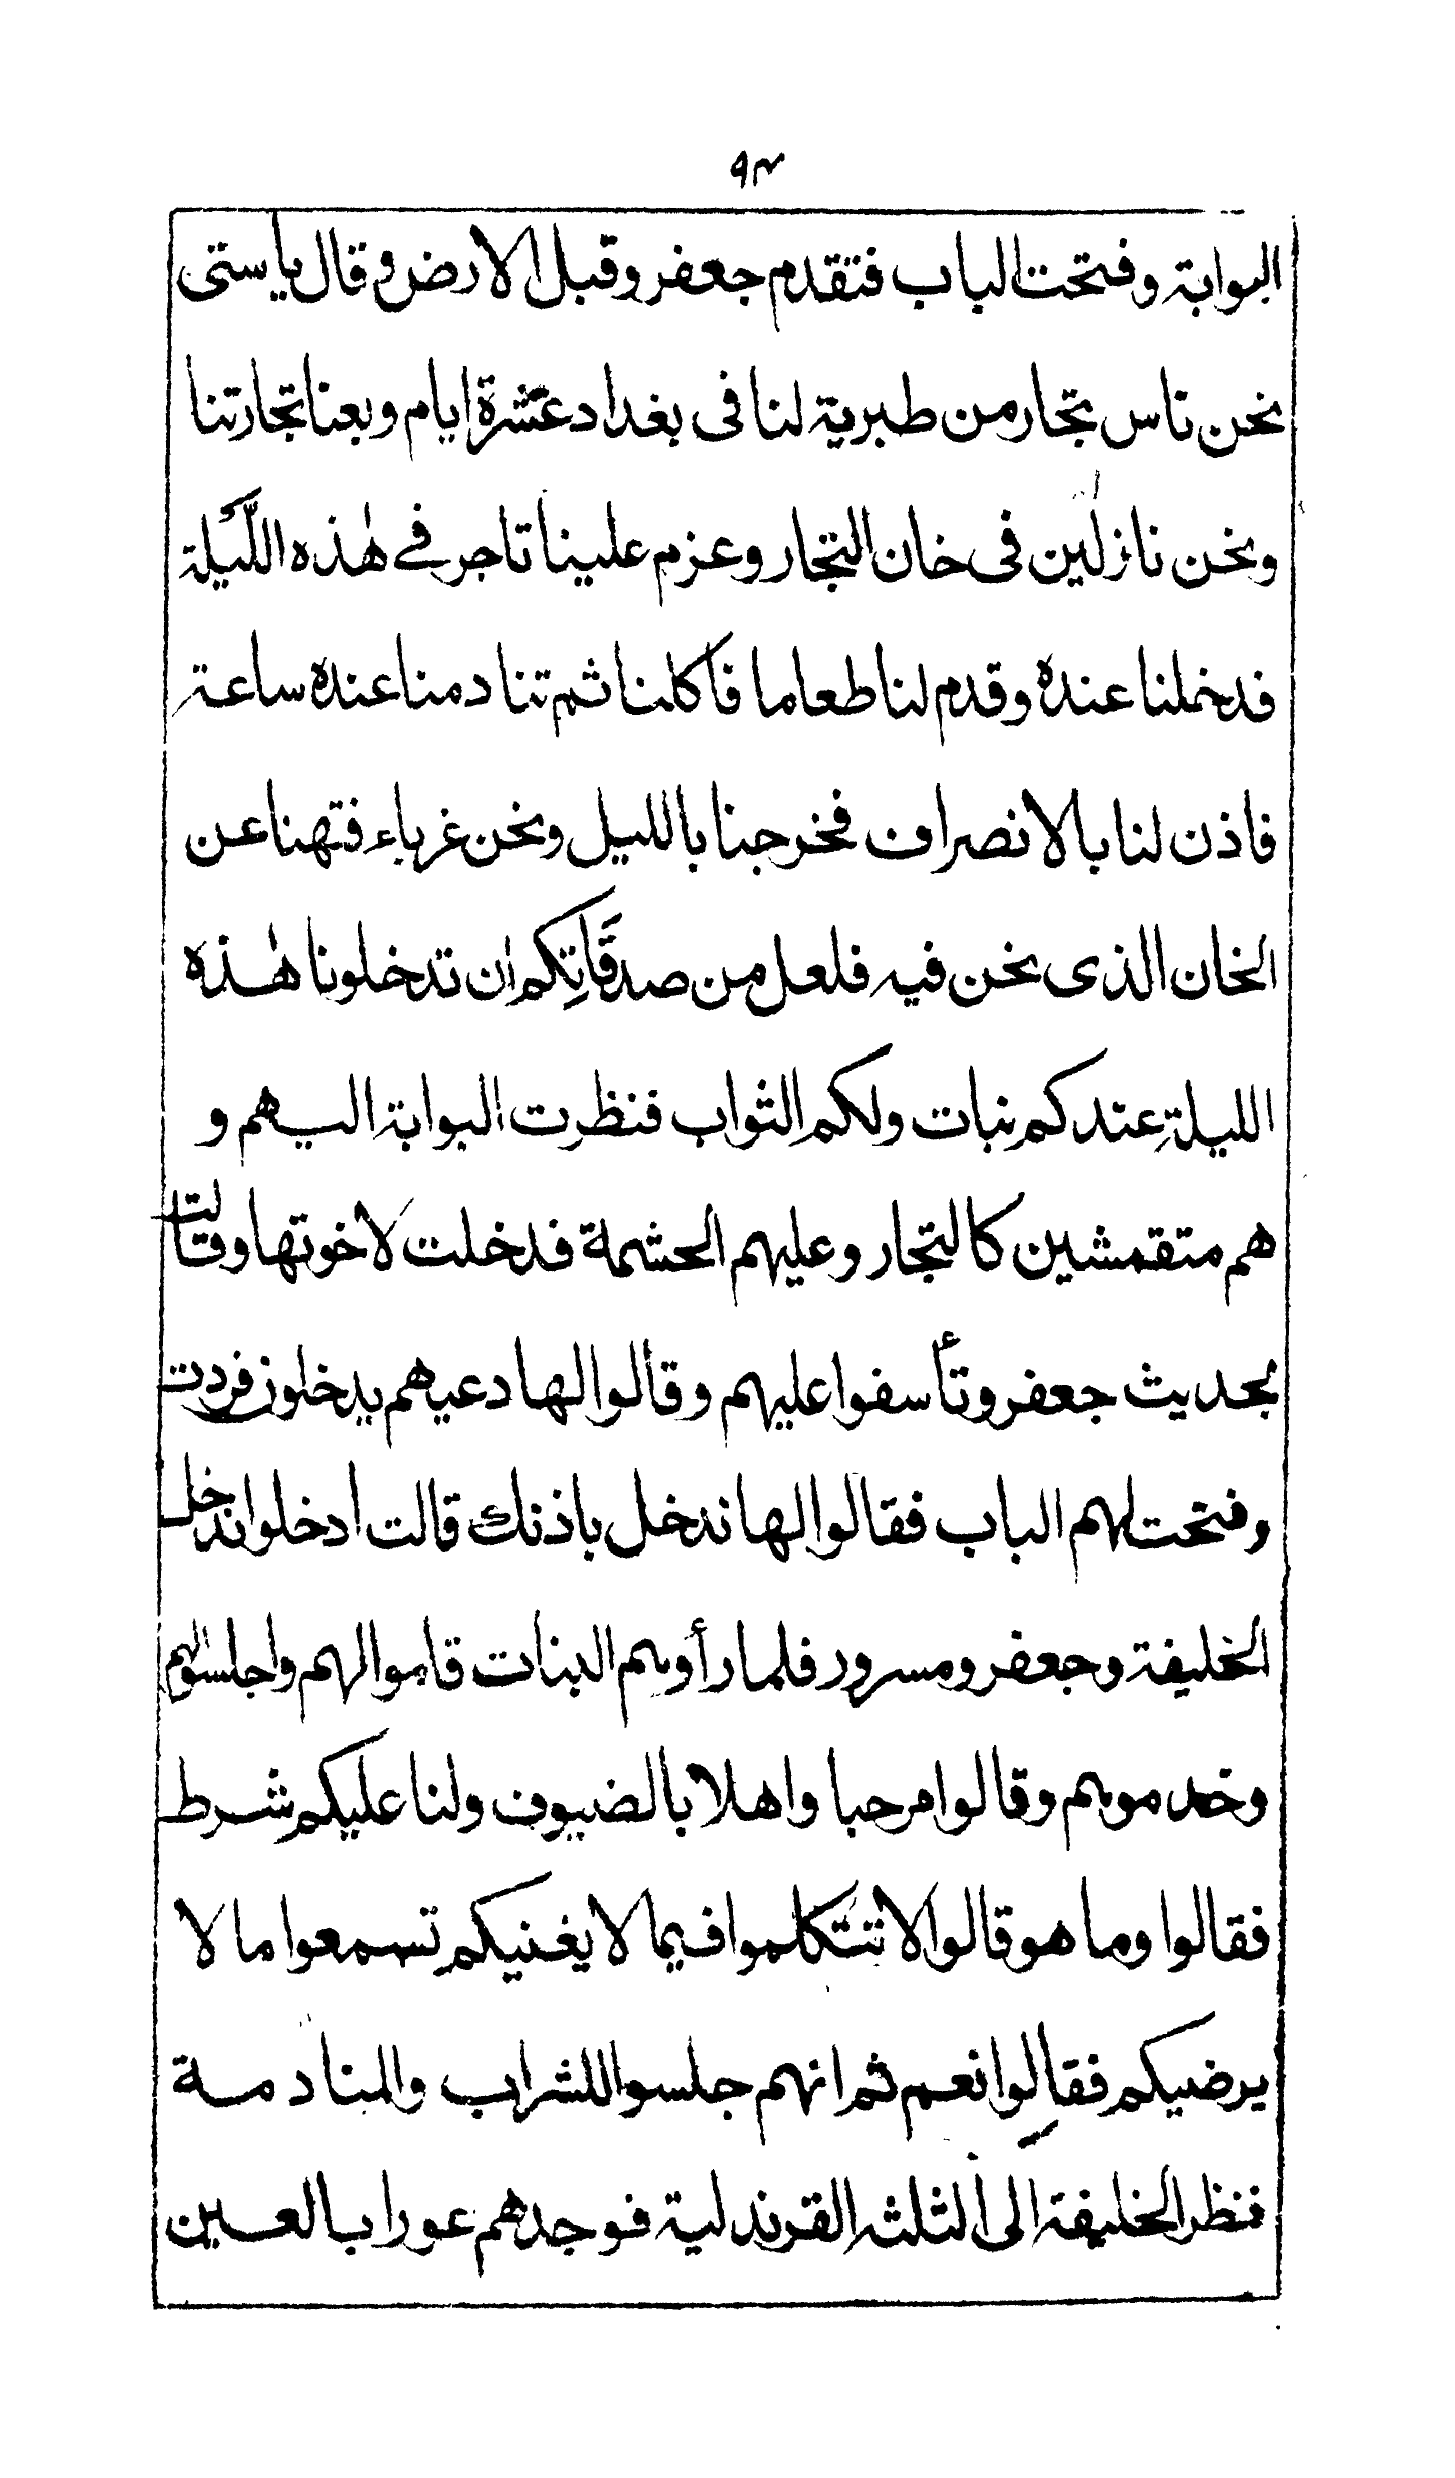 ٩٣
البوابة وفتحت الباب فتقدم جعفر وقبل الارض وقال ياستى
نحن ناس تجار من طبرية لنا فى بغداد عشرة ايام وبعنا تجارتنا
ونحن نازلين فى خان التجار وعزم علينا تاجر فے هٰذه اللَّيلة
فدخلنا عنده وقدم لنا طعاما فاكلنا ثم تنادمنا عنده ساعة
فاذن لنا بالانصراف فخرجنا بالليل ونحن غرباء فتهنا عن
الخان الذى نحن فيه فلعل من صدقَاتِكم ان تدخلونا هٰذه
الليلةِ عِندكم نبات ولكم الثواب فنظرت البوابة اليهم و
هم متقمشين كالتجار وعليهم الحشمة فدخلت لاخوتها وقالت
بحديث جعفر وتأسفوا عليهم وقالوا لها دعيهم يدخلوز فردت
وفتحت لهم الباب فقالوا لها ندخل باذنك قالت ادخلوا ندخل
الخليفة وجعفر ومسرور فلما رأوهم البنات قاموا لهم واجلسوهم
وخدموهم وقالوا مرحبا واهلا بالضيوف ولنا عليكم شرط
فقالوا وما هو قالوا لا تتكلموا فيما لا يغنيكم تسمعوا ما لا
يرضيكم فقالوا نعم ثم انهم جلسوا للشراب والمنادمة
فنظر الخليفة الى الثلثه القرندلية فوجدهم عورا بالعين